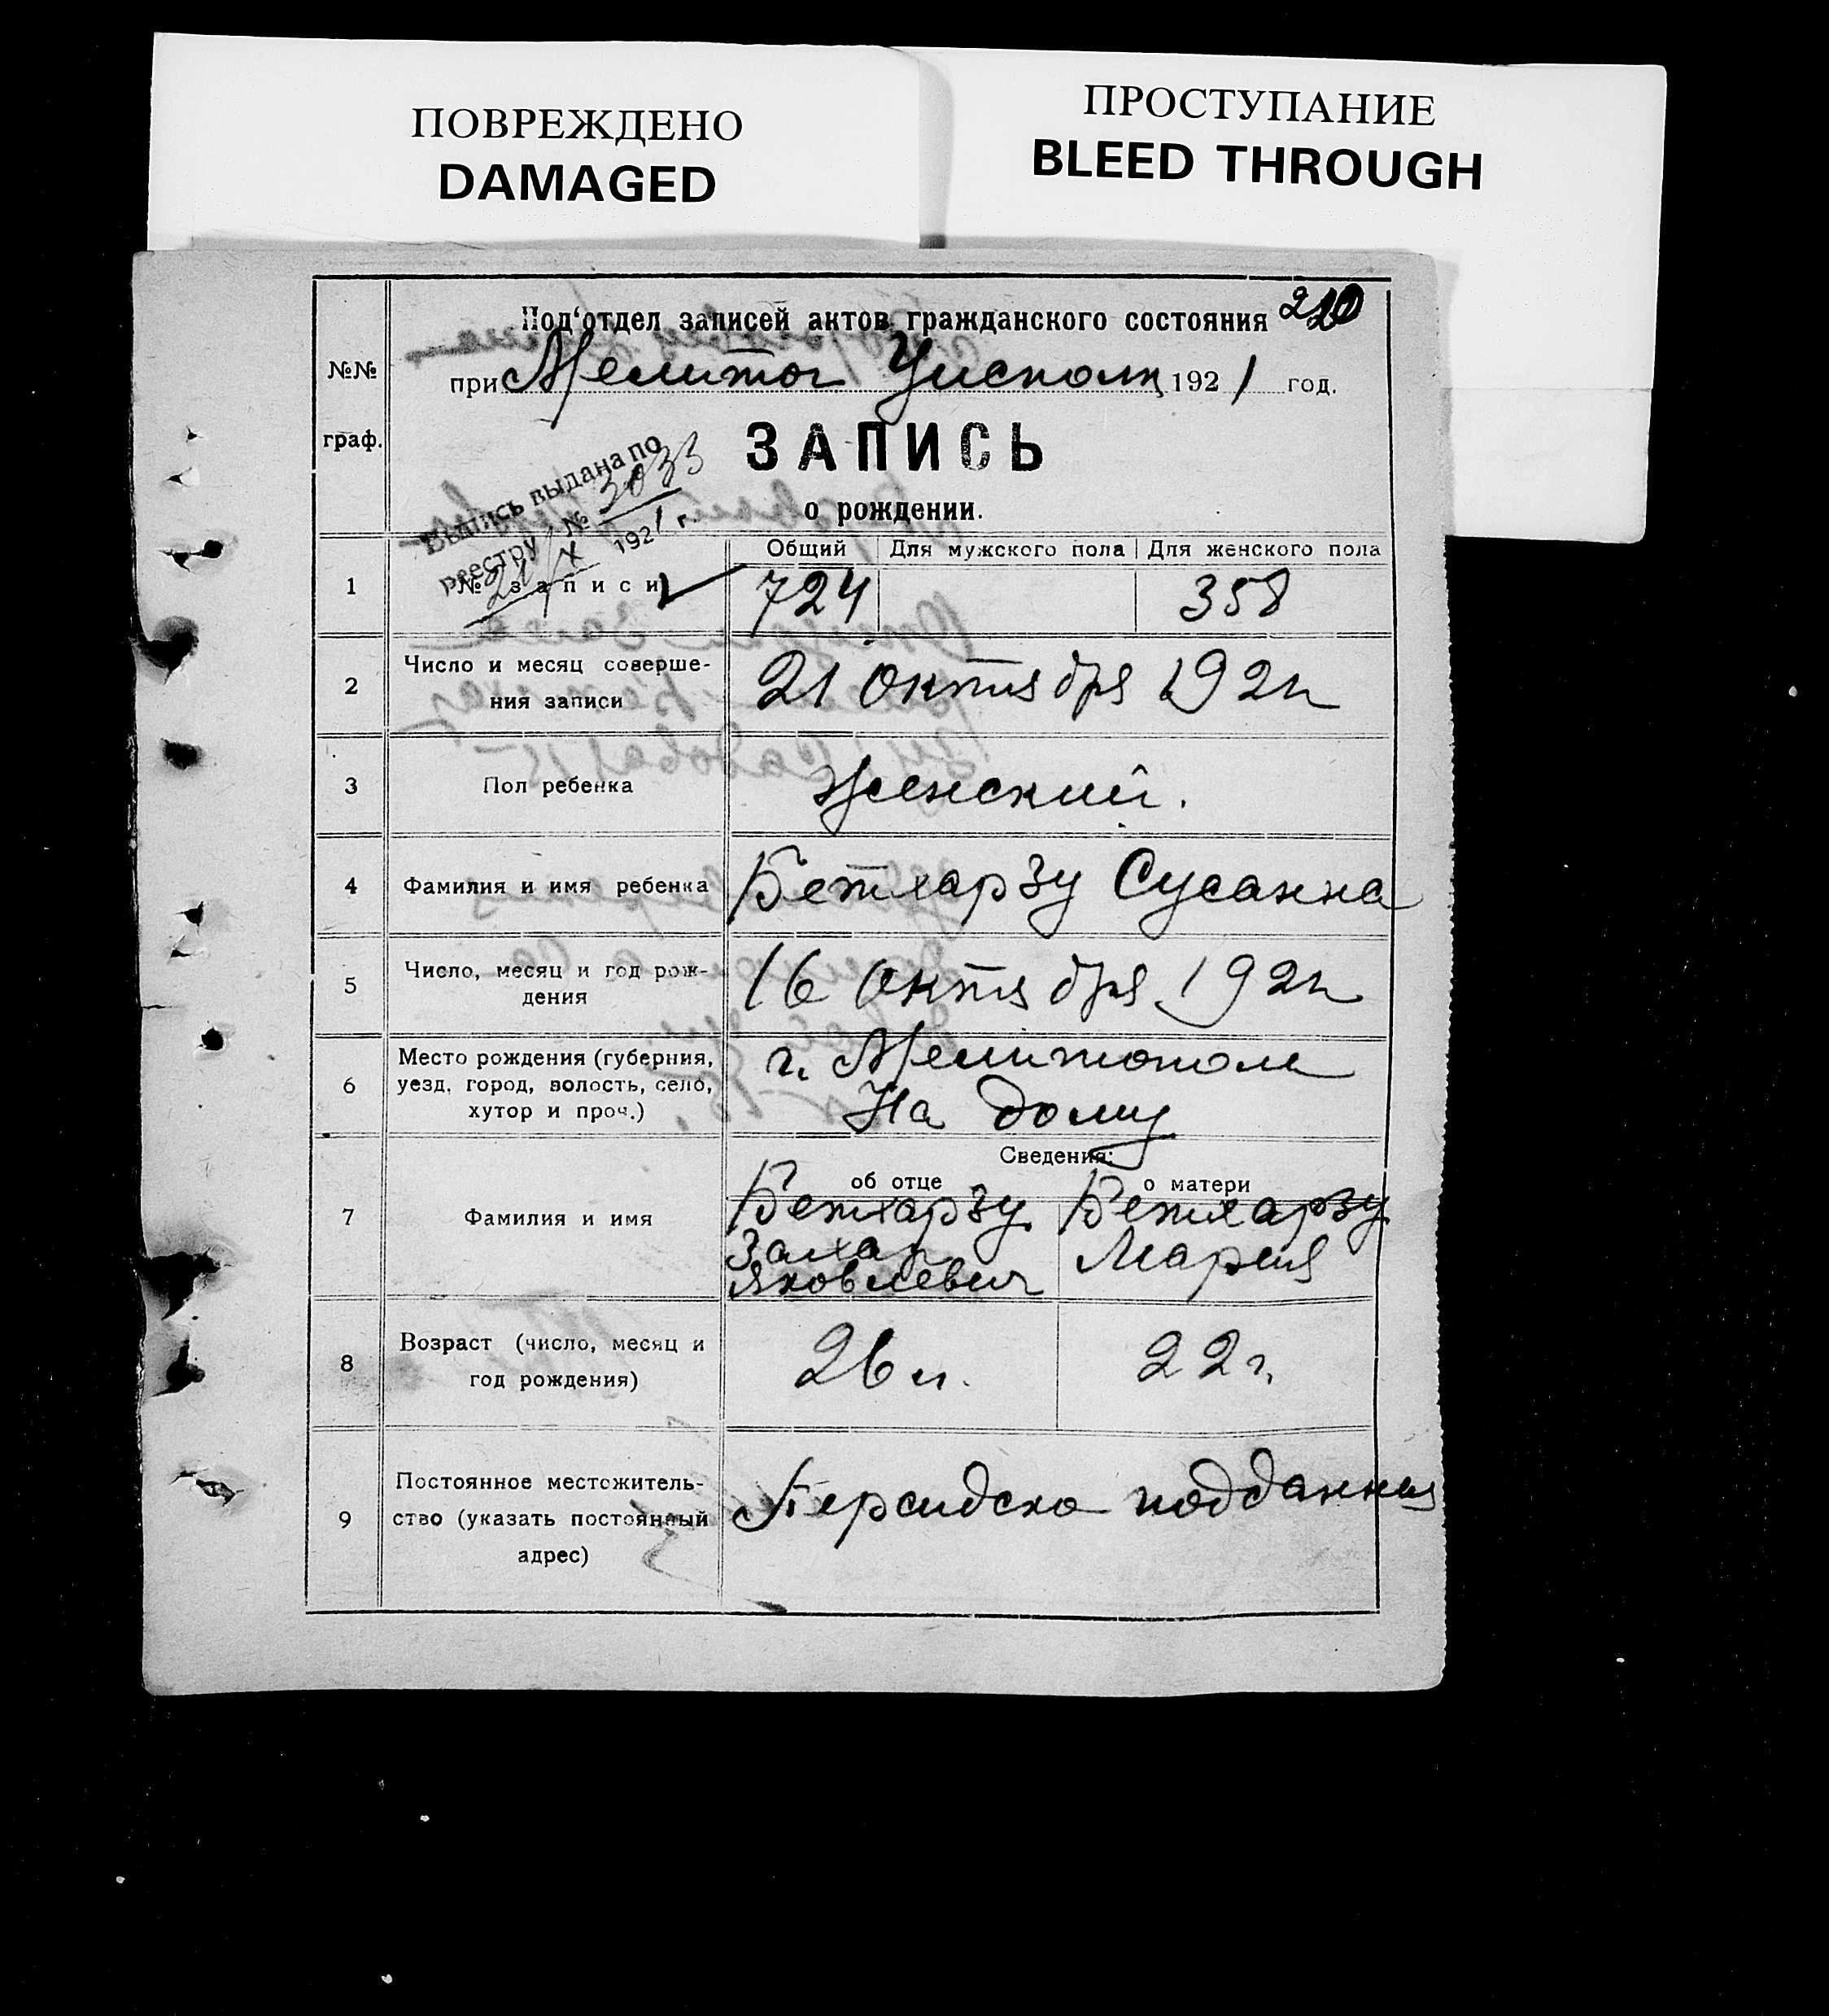 ПОВРЕЖДЕНО
DAMAGED
ПРОСТУПАНИЕ
BLEED THROUGH
210
Под'отдел записей актов гражданского состояния
при Мелитоп Уисполк 1921 год.
№№
граф.
ЗАПИСЬ
о рождении.
Выпись выдана по
реестру № 3033
21/X 1921 г.
Общий Для мужского пола Для женского пола
1 № записи 724 358
2 Число и месяц соверше-
ния записи
21 октября 192
3 Пол ребенка Женский.
4 Фамилия и имя ребенка Бетхарзу Сусанна
5 Число, месяц и год рож-
дения
16 октября 192
6 Место рождения (губерния,
уезд, город, волость, село,
хутор и проч.)
г. Мелитополь
На дому
Сведения:
об отце о матери
7 Фамилия и имя
Бетхарзу Бетхарзу
Захар Мария
Яковлевич
8 Возраст (число, месяц и
год рождения)
26 л. 22 г.
9 Постоянное местожитель-
ство (указать постоянный
адрес)
Персидско подданные